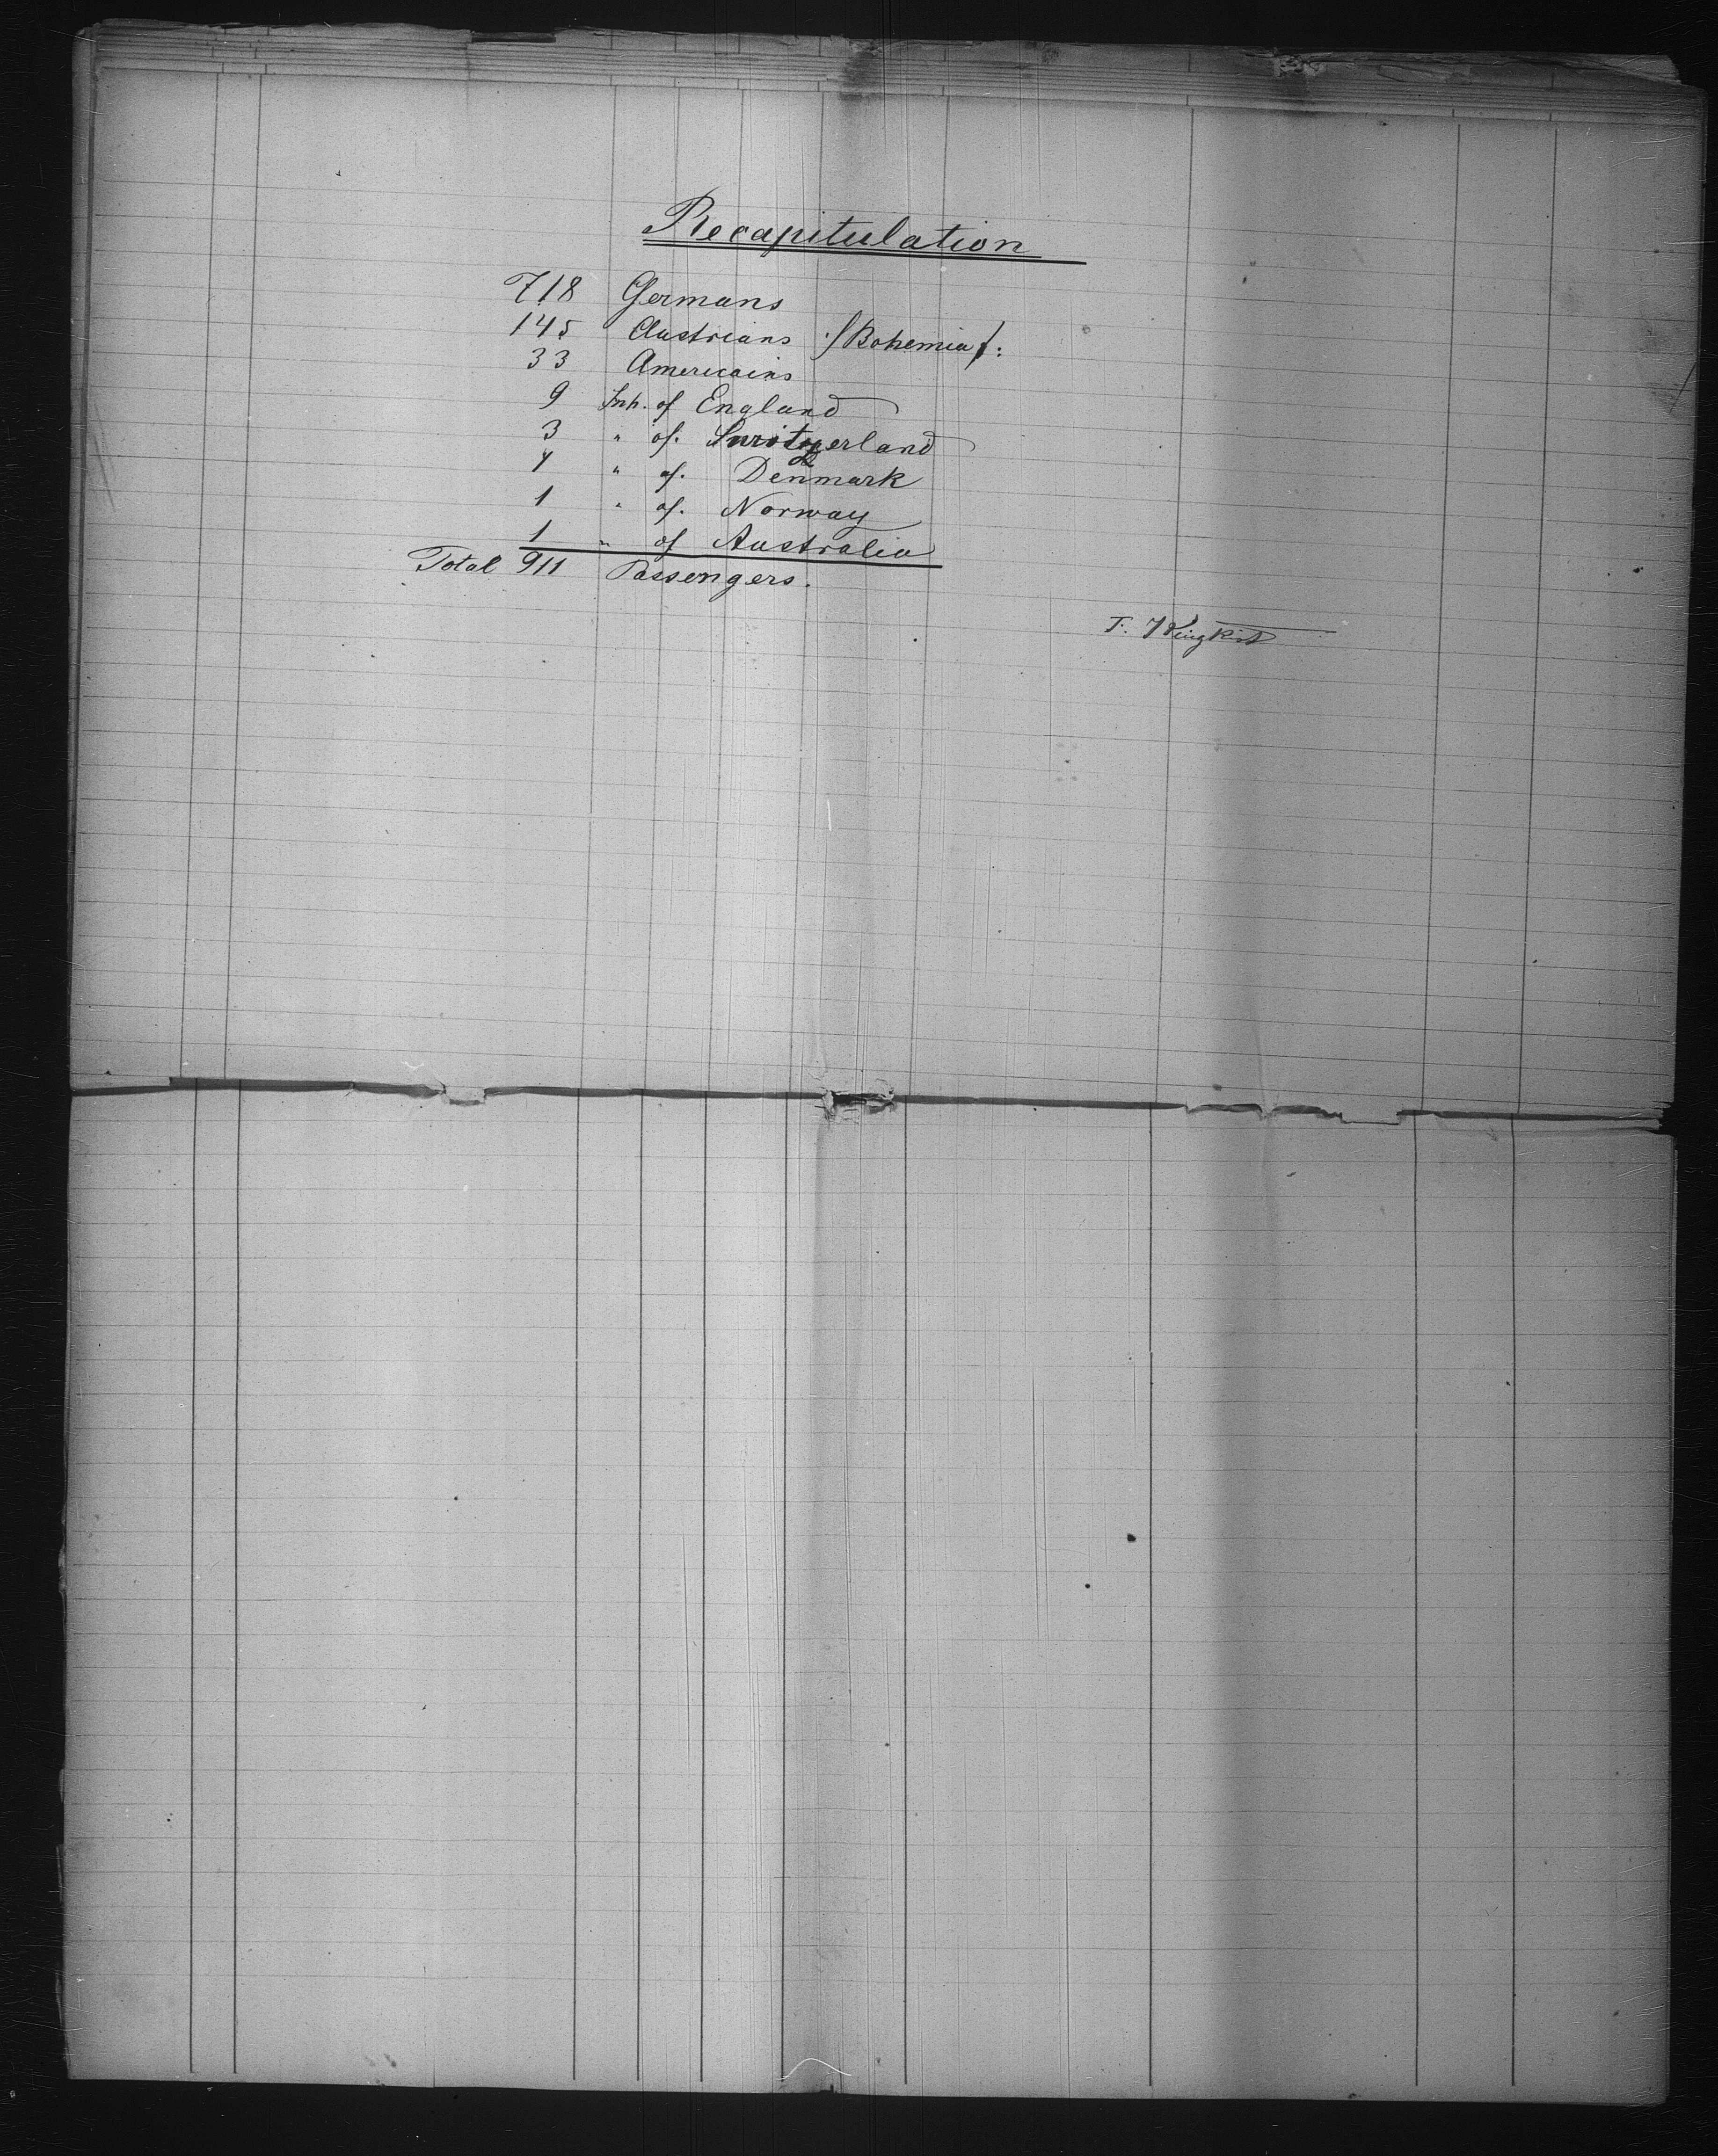 Recapitulation
718 Germans
145 Austrians ./Bohemia/:
33 Americains
9 Inh. of England
3 " of. Switzerland
1 " of. Denmark
1 " of. Norway
1 " of Australia
Total 911 Passengers.